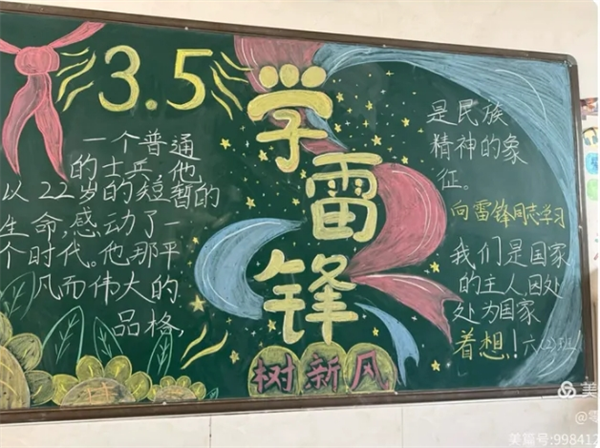 3.5
学
雷
锋
树新风
一个普通
的士兵,他
以22岁的短暂的
生命,感动了一
个时代。他那平
凡而伟大的
品格
是民族
精神的象
征。
向雷锋同志学习
我们是国家
的主人因处
处为国家
着想!六(2)班
美篇号:998412